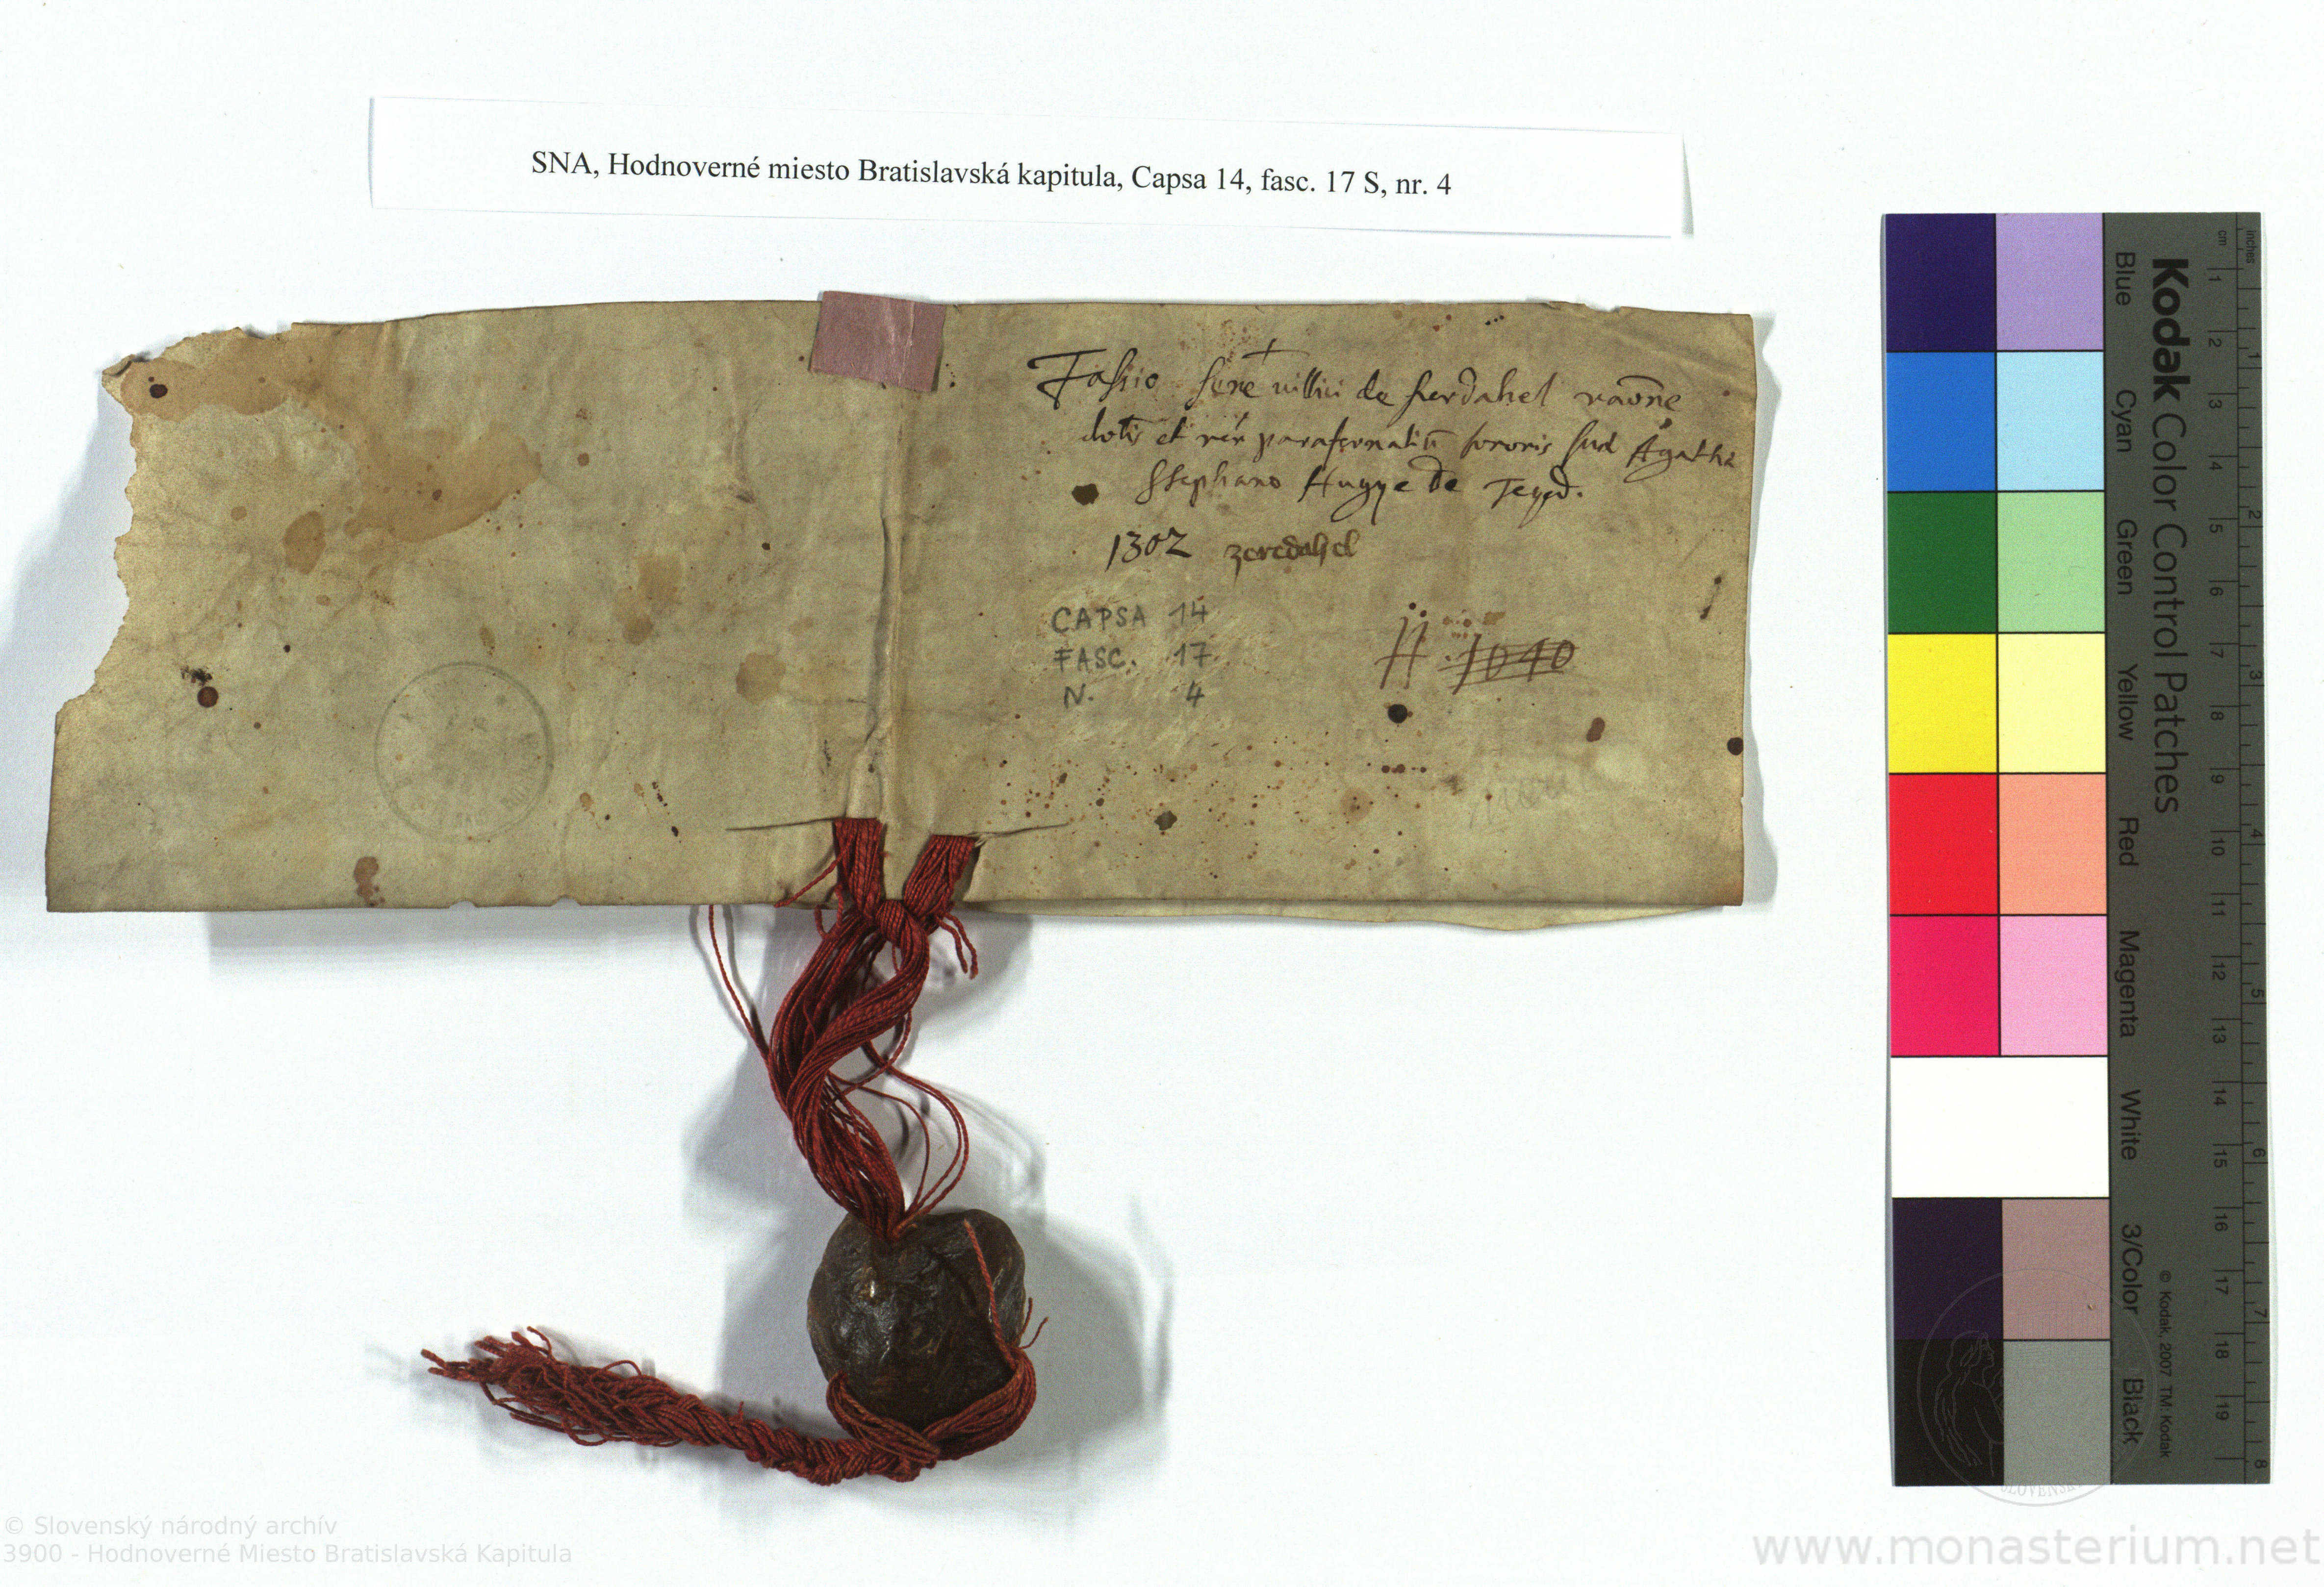 SNA, Hodnoverné miesto Bratislavská kapitula, Capsa 14, fasc. 17 S, nr. 4
Fassio villici de raōne
dotis et parafernaliū sororis Agatha
Stephano Hugye de Teyed.
1302 zeredahel
CAPSA 14
FASC. 17
N. 4
1040
Kodak Color Control Patches
Blue Cyan Green Yellow Red Magenta White 3/Color Black
© Kodak, 2007 TM: Kodak
cm 1 2 3 4 5 6 7 8 9 10 11 12 13 14 15 16 17 18 19
inches 1 2 3 4 5 6 7 8
© Slovenský národný archív
3900 - Hodnoverné Miesto Bratislavská Kapitula
www.monasterium.net